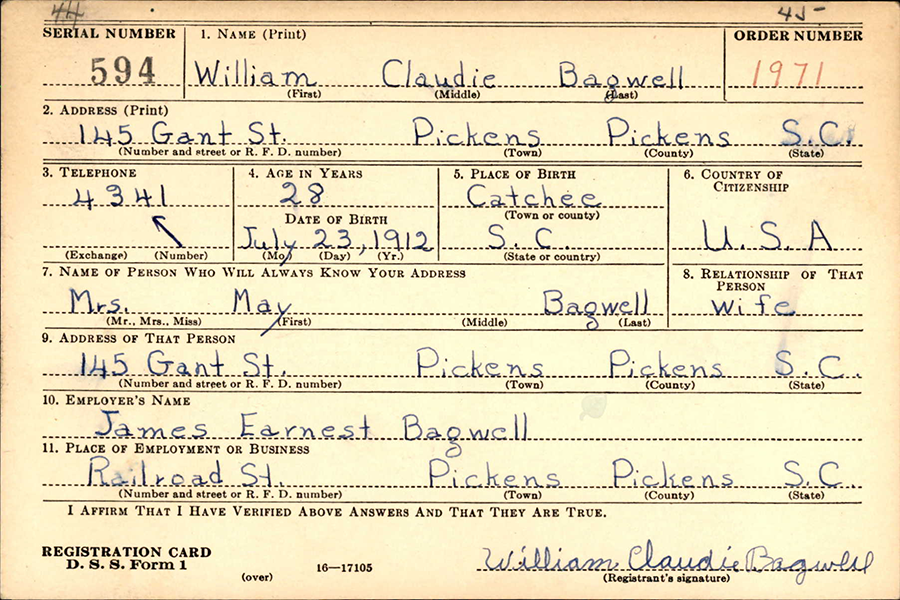 44 45-
SERIAL NUMBER 1. NAME (Print) ORDER NUMBER
594 William Claudie Bagwell 1971
(First) (Middle) (Last)
2. ADDRESS (Print)
145 Gant St. Pickens Pickens S.C.
(Number and street or R. F. D. number) (Town) (County) (State)
3. TELEPHONE 4. AGE IN YEARS 5. PLACE OF BIRTH 6. COUNTRY OF CITIZENSHIP
4341 28 Catchee
DATE OF BIRTH (Town or county)
July 23, 1912 S.C. U.S.A
(Exchange) (Number) (Mo.) (Day) (Yr.) (State or country)
7. NAME OF PERSON WHO WILL ALWAYS KNOW YOUR ADDRESS 8. RELATIONSHIP OF THAT PERSON
Mrs. May Bagwell wife
(Mr., Mrs., Miss) (First) (Middle) (Last)
9. ADDRESS OF THAT PERSON
145 Gant St. Pickens Pickens S.C.
(Number and street or R. F. D. number) (Town) (County) (State)
10. EMPLOYER'S NAME
James Earnest Bagwell
11. PLACE OF EMPLOYMENT OR BUSINESS
Railroad St. Pickens Pickens S.C.
(Number and street or R. F. D. number) (Town) (County) (State)
I AFFIRM THAT I HAVE VERIFIED ABOVE ANSWERS AND THAT THEY ARE TRUE.
REGISTRATION CARD
D. S. S. Form 1 William Claudie Bagwell
(over) 16—17105 (Registrant's signature)